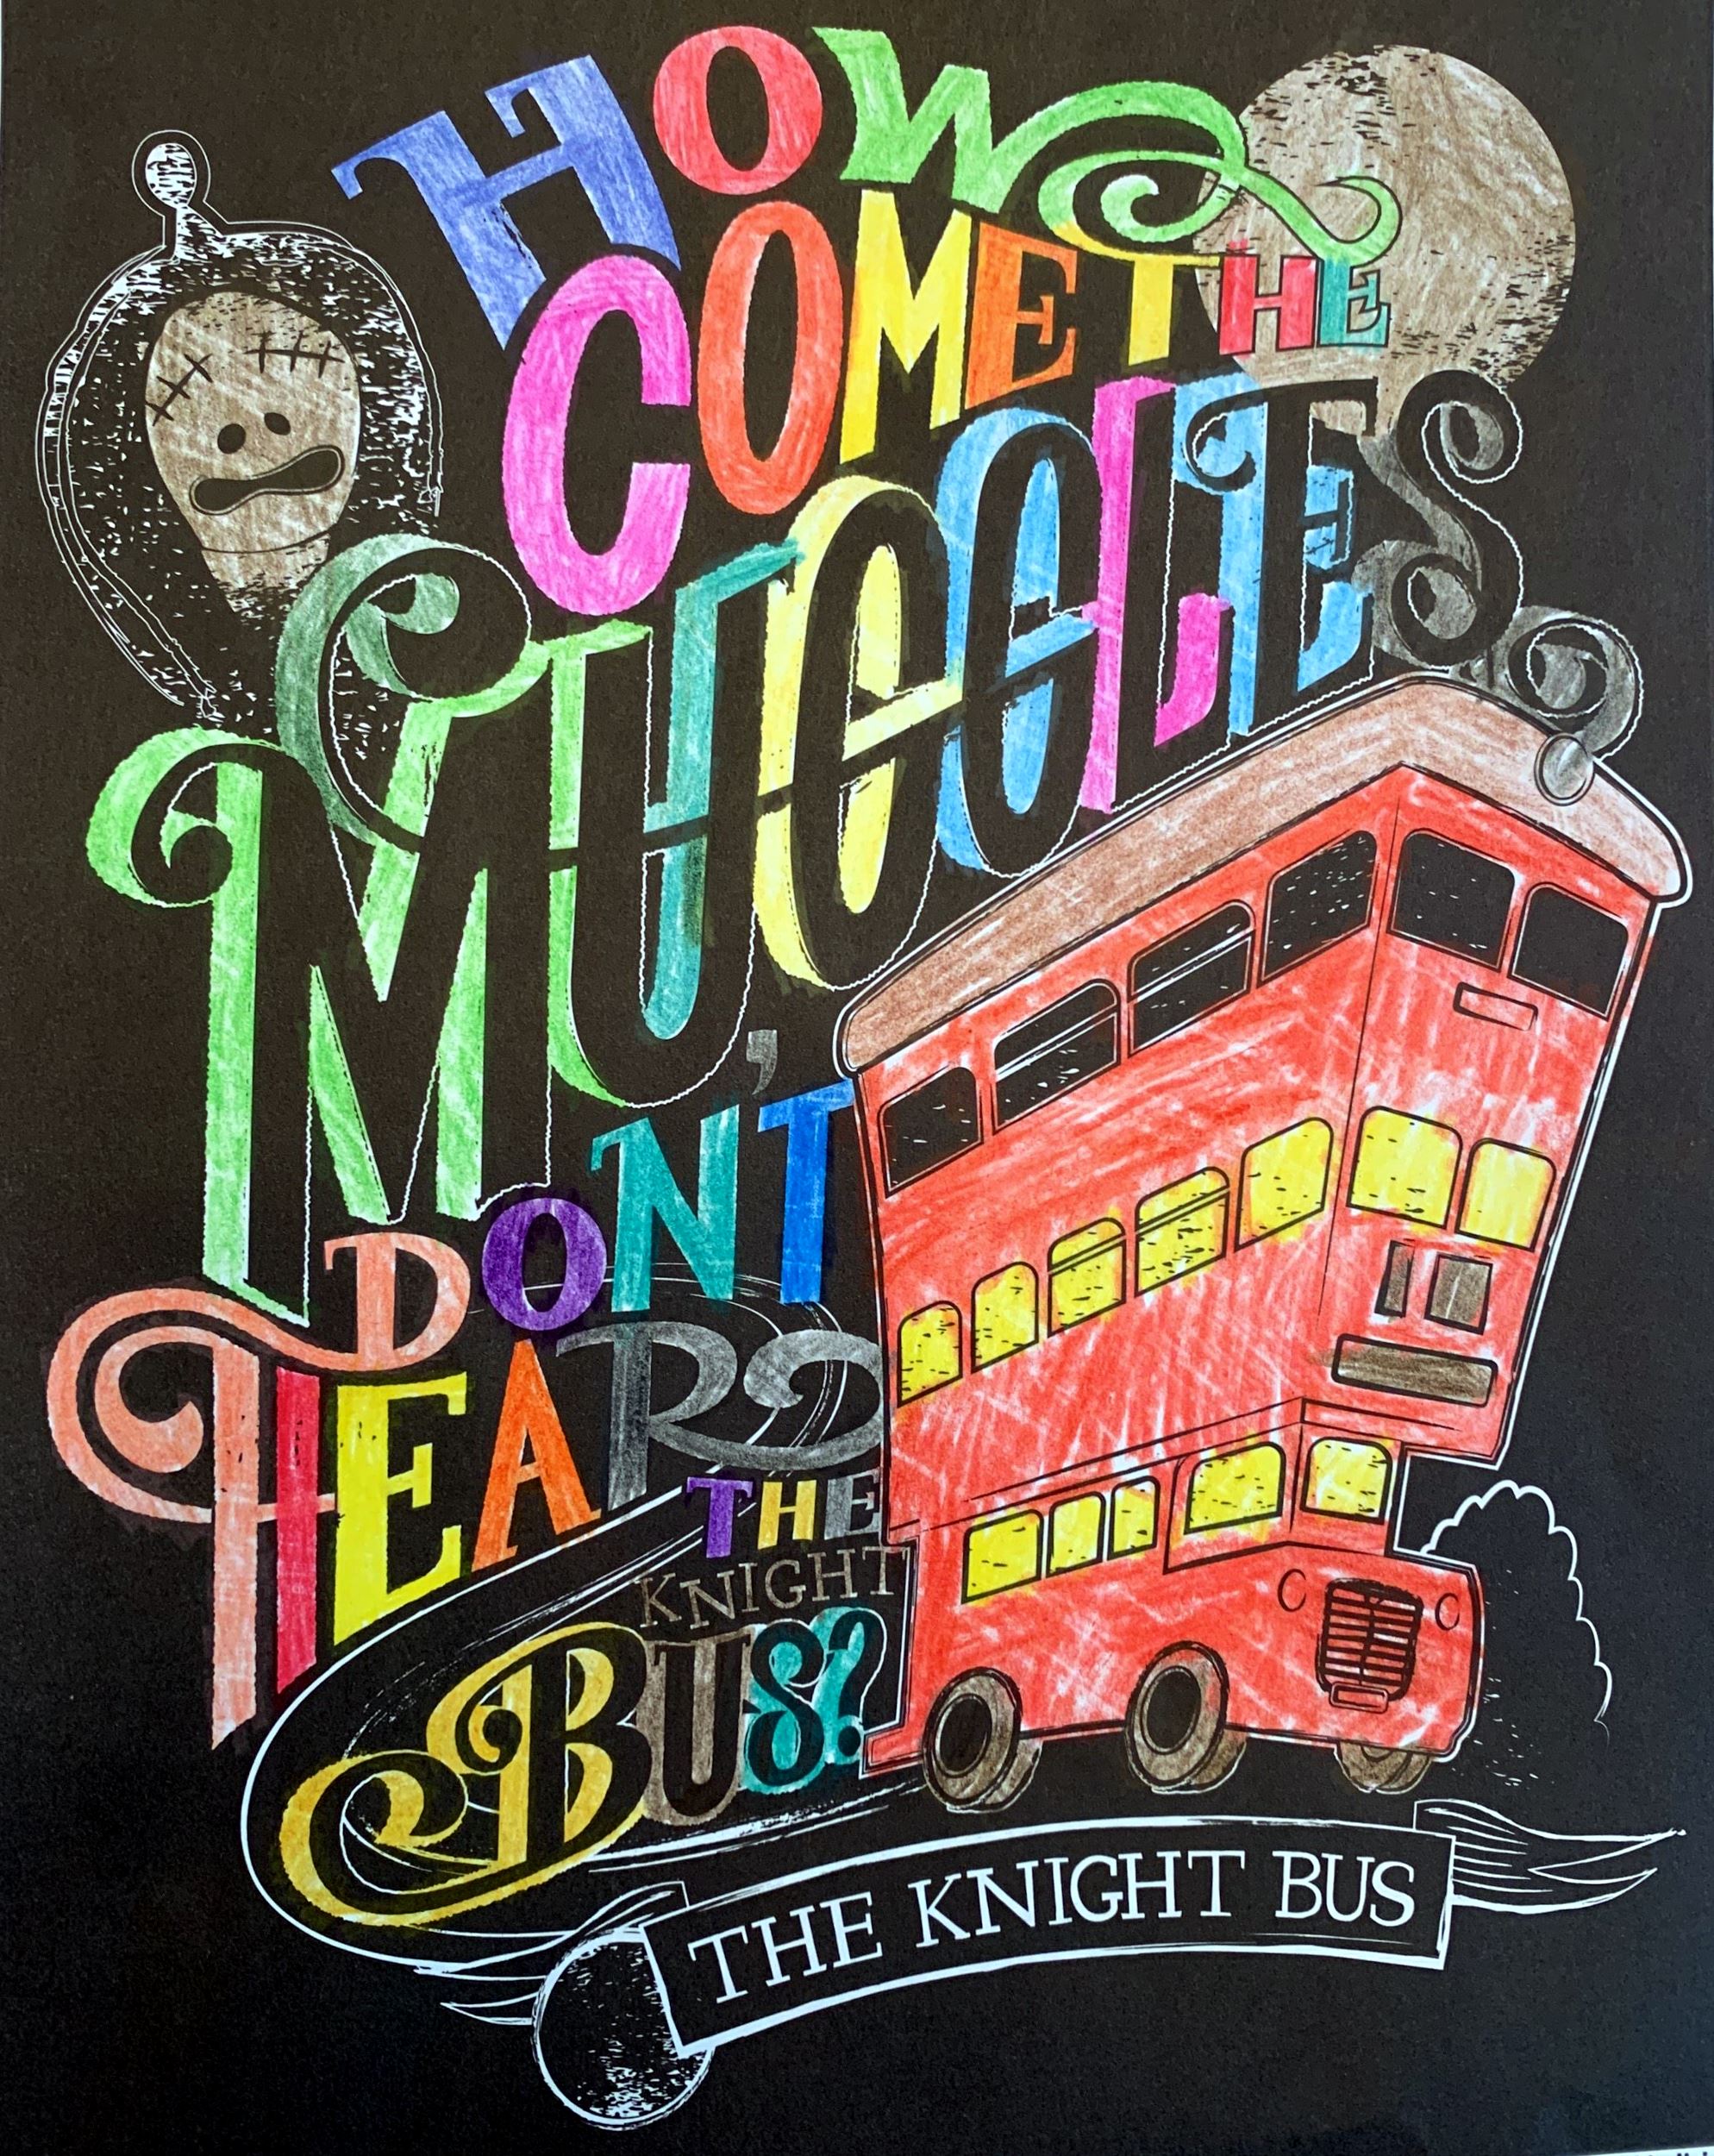 HOW
COME THE
MUGGLES,
DONT
HEAR
THE
KNIGHT
BUS?
THE KNIGHT BUS